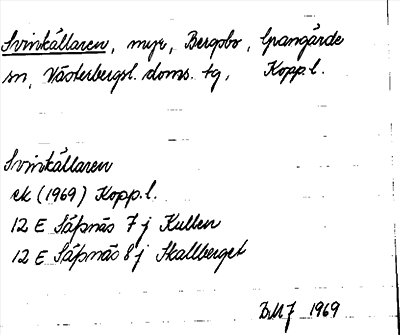 Svinkällaren, myr, Bergsbo, Grangärde
sn, Västerbergsl. doms. tg, Kopp. l.
Svinkällaren
ek (1969) Kopp. l.
12 E Säfsnäs 7 j Kullen
12 E Säfsnäs 8 j Skallberget
1969